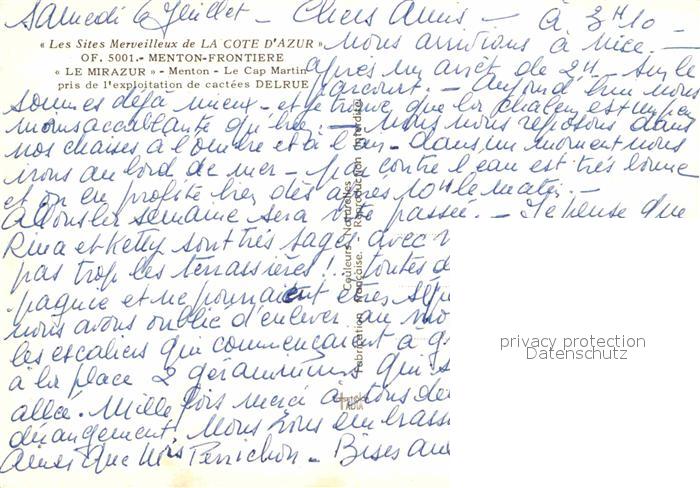 Samedi 6 Juillet - Chers Amis - à 3H10 -
« Les Sites Merveilleux de LA COTE D'AZUR »
OF. 5001.- MENTON-FRONTIERE
« LE MIRAZUR » - Menton - Le Cap Martin
pris de l'exploitation de cactées DELRUE
nous arrivions à Nice. -
après un arrêt de 2H - sur le
parcourt. - Aujourd'hui nous
sommes déjà mieux - et je trouve que la chaleur est un peu
moins accablante qu'hier. - Nous nous reposons dans
nos chaises à l'ombre et à l'air - dans un moment nous
irons au bord de mer - par contre l'eau est très bonne
et on en profite bien dès après 10H le matin. -
Allons la semaine sera vite passée. - Je pense que
Rina et Ketty sont très sages avec
pas trop les terrassières !.. toutes
pagnie et ne pourraient êtres
nous avons oublié d'enlever au
les escaliers qui commençaient à
à la place 2 géraniums qui
allée. Mille fois merci à tous
dérangement. Nous vous embrass
ainsi que Mrs Perrichon - Bises aux
Couleurs Naturelles
Fabrication Française. - Reproduction interdite
privacy protection
Datenschutz